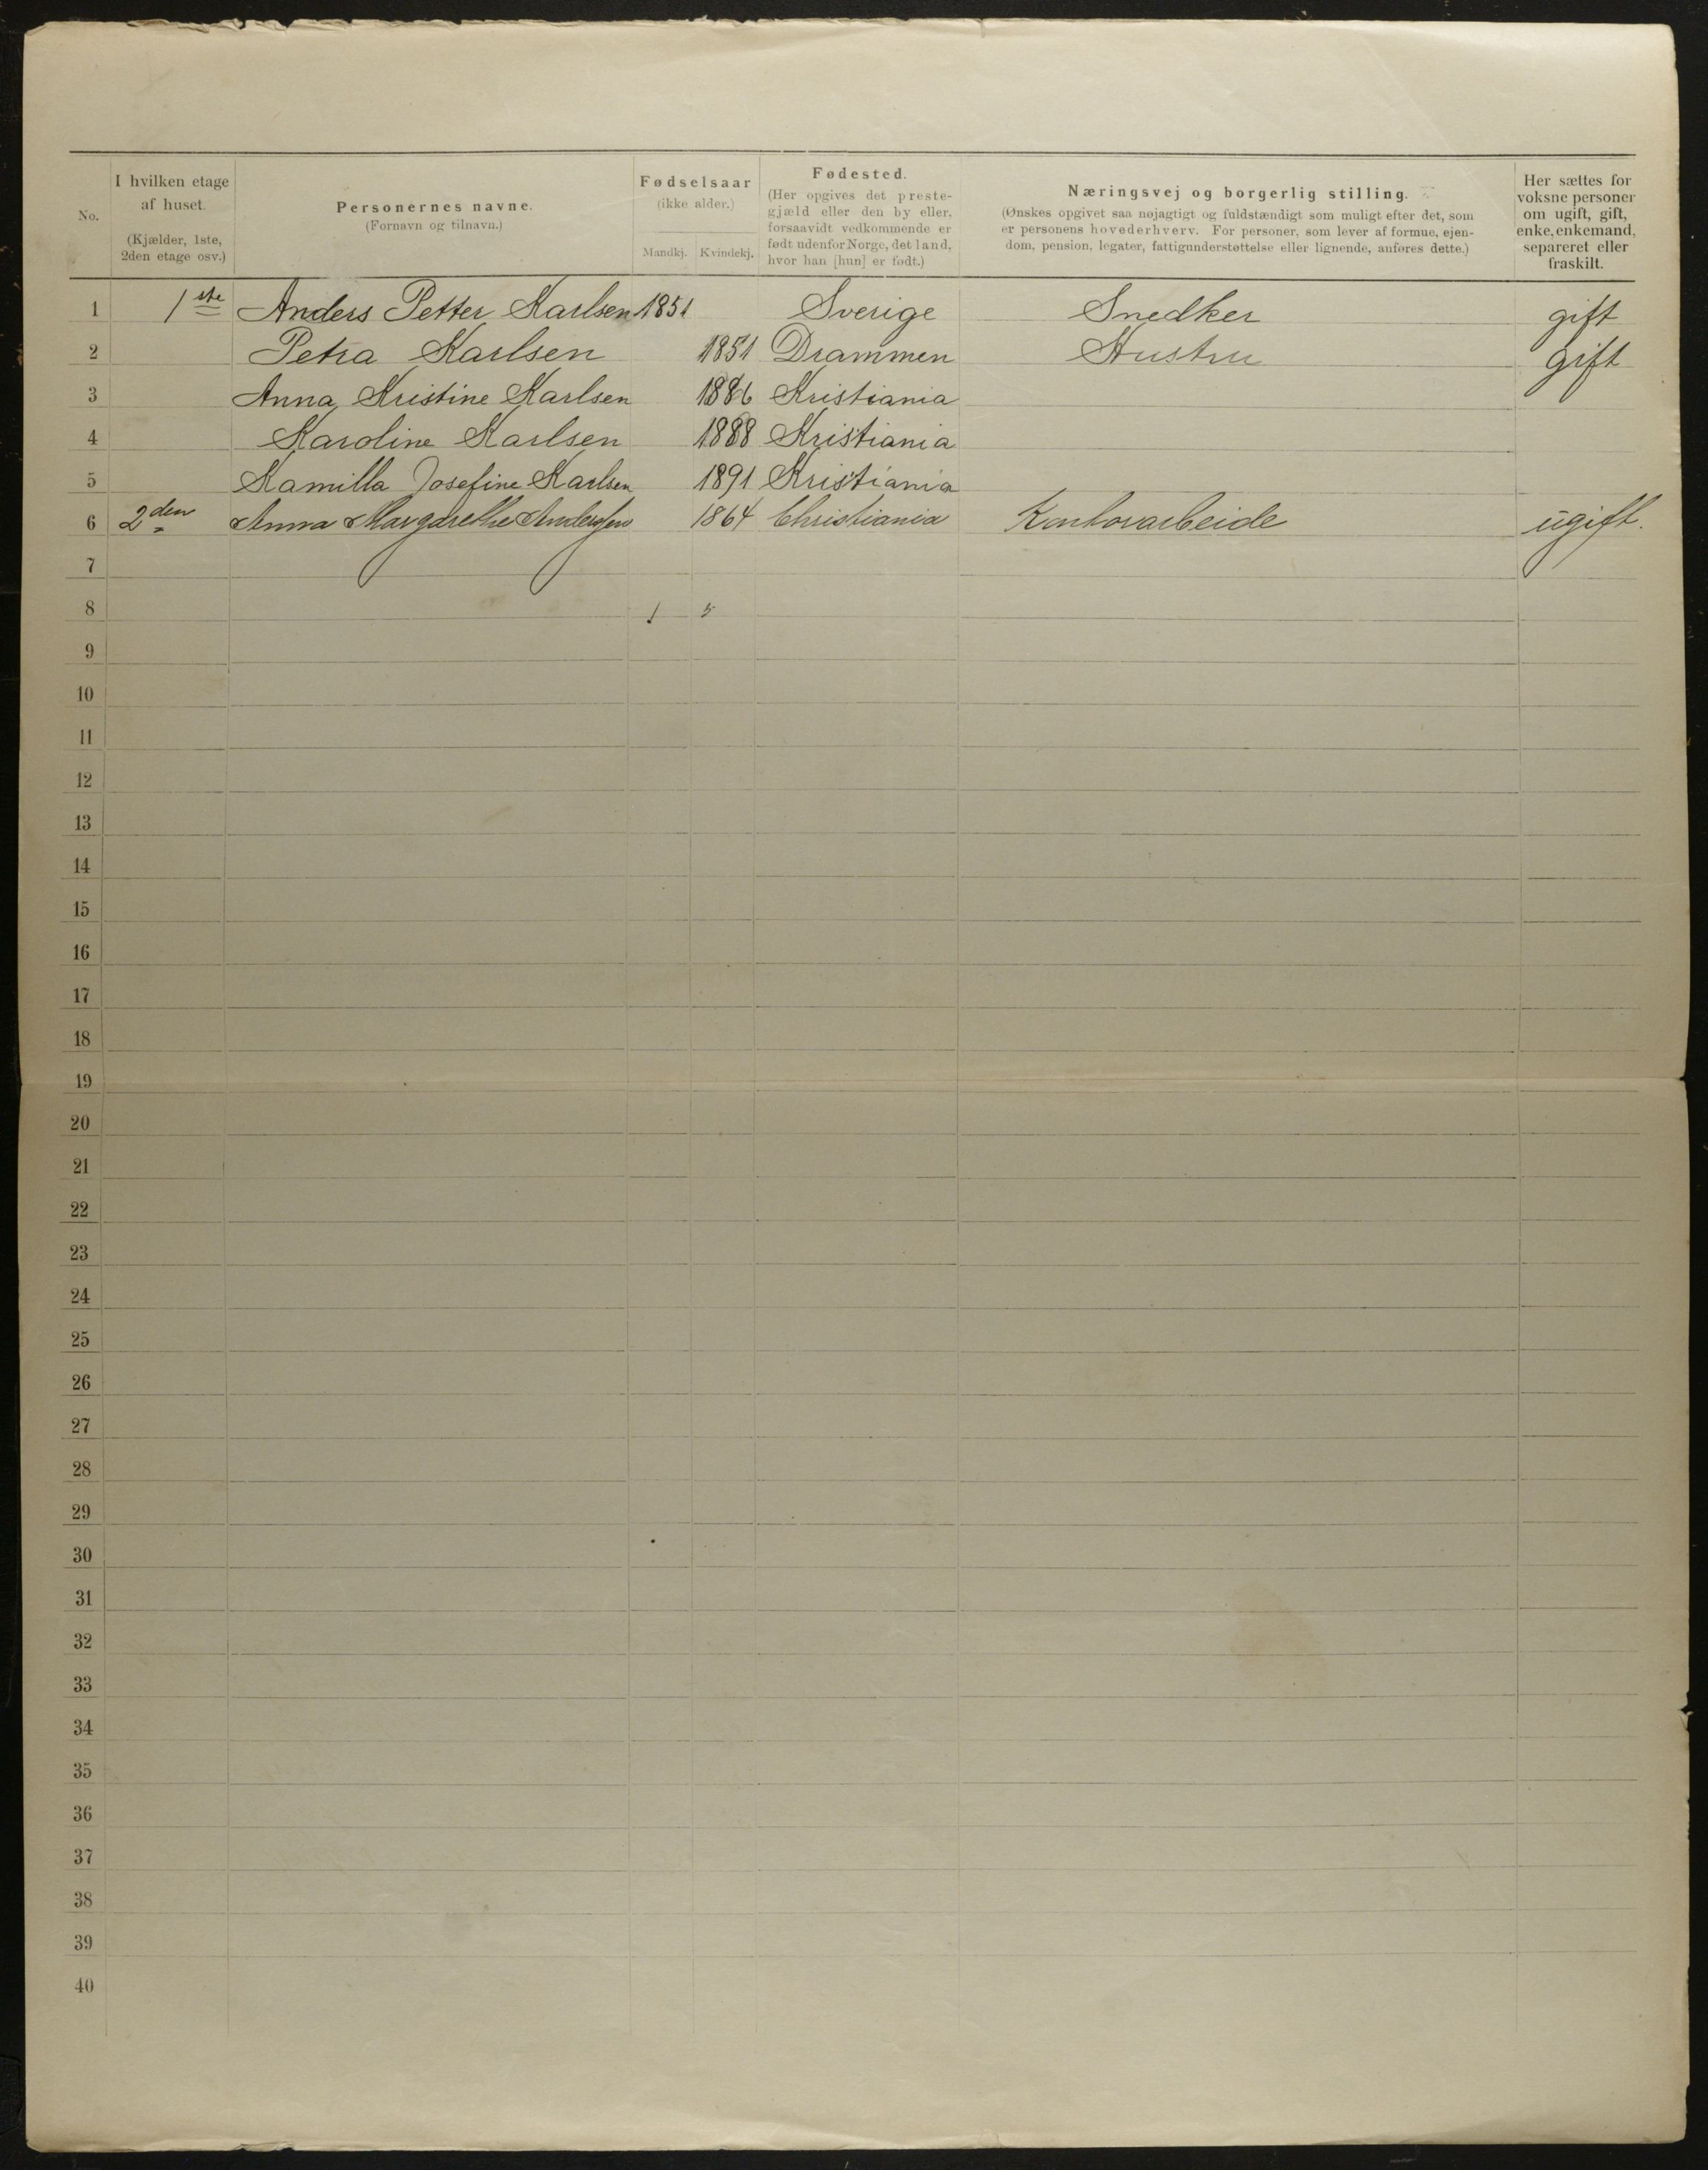 No.
I hvilken etage af huset.
(Kjælder, 1ste, 2den etage osv.)
Personernes navne.
(Fornavn og tilnavn.)
Fødselsaar
(ikke alder.)
Mandkj. Kvindekj.
Fødested.
(Her opgives det prestegjæld eller den by eller, forsaavidt vedkommende er født udenfor Norge, det land, hvor han [hun] er født.)
Næringsvej og borgerlig stilling.
(Ønskes opgivet saa nøjagtigt og fuldstændigt som muligt efter det, som er personens hovederhverv. For personer, som lever af formue, ejendom, pension, legater, fattigunderstøttelse eller lignende, anføres dette.)
Her sættes for voksne personer om ugift, gift, enke, enkemand, separeret eller fraskilt.
1 1ste Anders Petter Karlsen 1851 Sverige Snedker gift
2 Petra Karlsen 1851 Drammen Hustru gift
3 Anna Kristine Karlsen 1886 Kristiania
4 Karoline Karlsen 1888 Kristiania
5 Kamilla Josefine Karlsen 1891 Kristiania
6 2den Anna Margarethe Anderssen 1864 Christiania Kontorarbeide ugift.
7
8 1 5
9
10
11
12
13
14
15
16
17
18
19
20
21
22
23
24
25
26
27
28
29
30
31
32
33
34
35
36
37
38
39
40